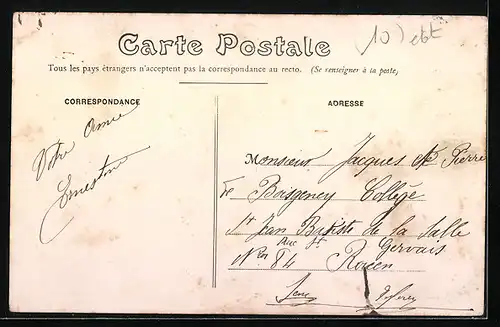 10) ebt
Carte Postale
Tous les pays étrangers n'acceptent pas la correspondance au recto. (Se renseigner à la poste)
CORRESPONDANCE
Votre amie
Ernestine
ADRESSE
Monsieur Jacques St Pierre
de Boisgeney Collège
St Jean Batiste de la Salle
Rue St Gervais
No 84 Rouen
Seine Infre